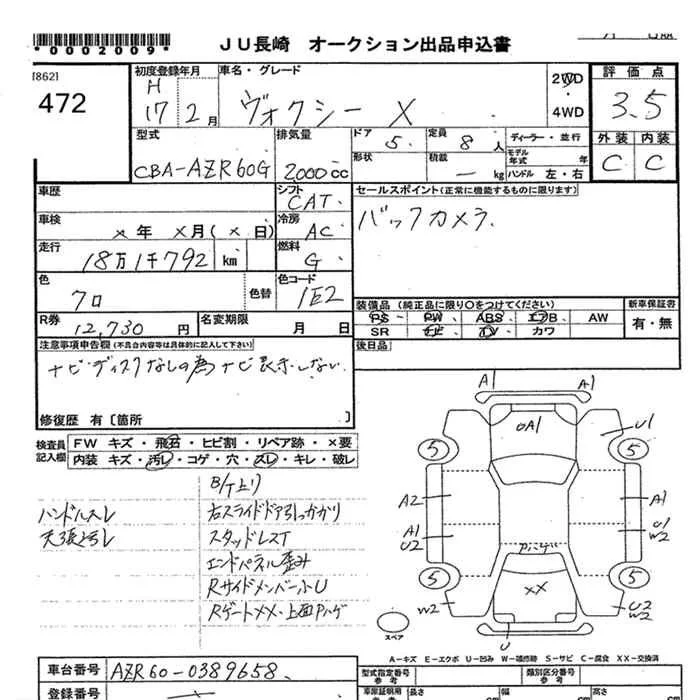 *0002009*
JU長崎 オークション出品申込書
[862]
472
初度登録年月
H
17 2月
車名・グレード
ヴォクシー X
2WD
・
4WD
評価点
3.5
外装 内装
C C
型式
CBA-AZR60G
排気量
2,000cc
ドア 5
形状
定員 8人
積載 — kg
ディーラー・並行
モデル年式 年
ハンドル 左・右
車歴
シフト
CAT
セールスポイント(正常に機能するものに限ります)
バックカメラ
車検
×年 ×月(×日)
冷房
AC
走行
18万1千792 km
燃料
G
色
クロ
色替
色コード
1E2
装備品(純正品に限り○をつけてください)
PS PW ABS エアB AW
SR ナビ TV カワ
新車保証書
有・無
R券
12,730円
名変期限
月 日
後日品
注意事項申告欄(不具合内容等は具体的に記入して下さい)
ナビディスクなしの為ナビ表示しない
修復歴 有[箇所 ]
検査員記入欄
FW キズ・飛石・ヒビ割・リペア跡・×要
内装 キズ・汚レ・コゲ・穴・スレ・キレ・破レ
B/T上リ
ハンドルスレ
右スライドドア引っかかり
天張汚レ
スタッドレスT
エンドパネル歪み
Rサイドメンバー小U
Rゲートxx・上面Pハゲ
A1 A1
U1
○A1
5 5
A2
A1
U2
A1
U1
W2
Pハゲ
5 5
XX
W2
U2
W2
U
スペア
A-キズ E-エクボ U-凹み W-補修跡 S-サビ C-腐食 XX-交換済
車台番号
AZR60-0389658
登録番号
型式指定番号
参考
類別区分番号
参考
車庫証明用
参考
長さ
cm
幅
cm
高さ
cm